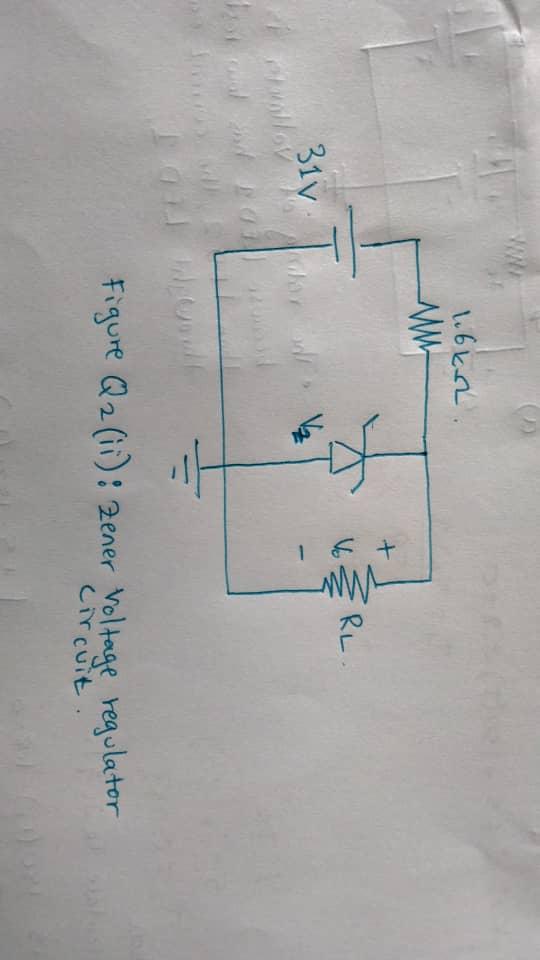 1.6kΩ.
31V.
Vz
+
Vo
-
RL.
Figure Q2(ii): Zener Voltage regulator
circuit.